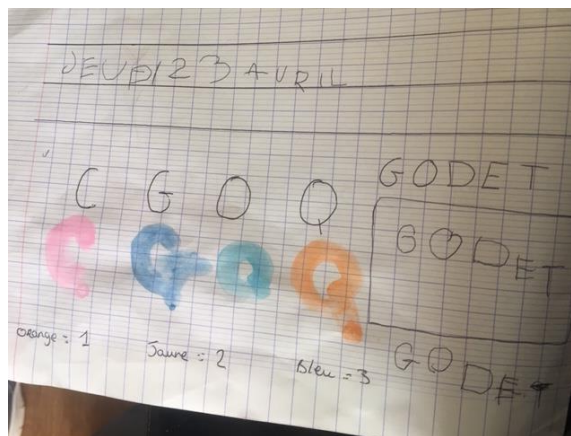 JEUDI 23 AVRIL
GODET
C G O Q
GODET
C G O Q
orange = 1
Jaune = 2
Bleu = 3
GODET